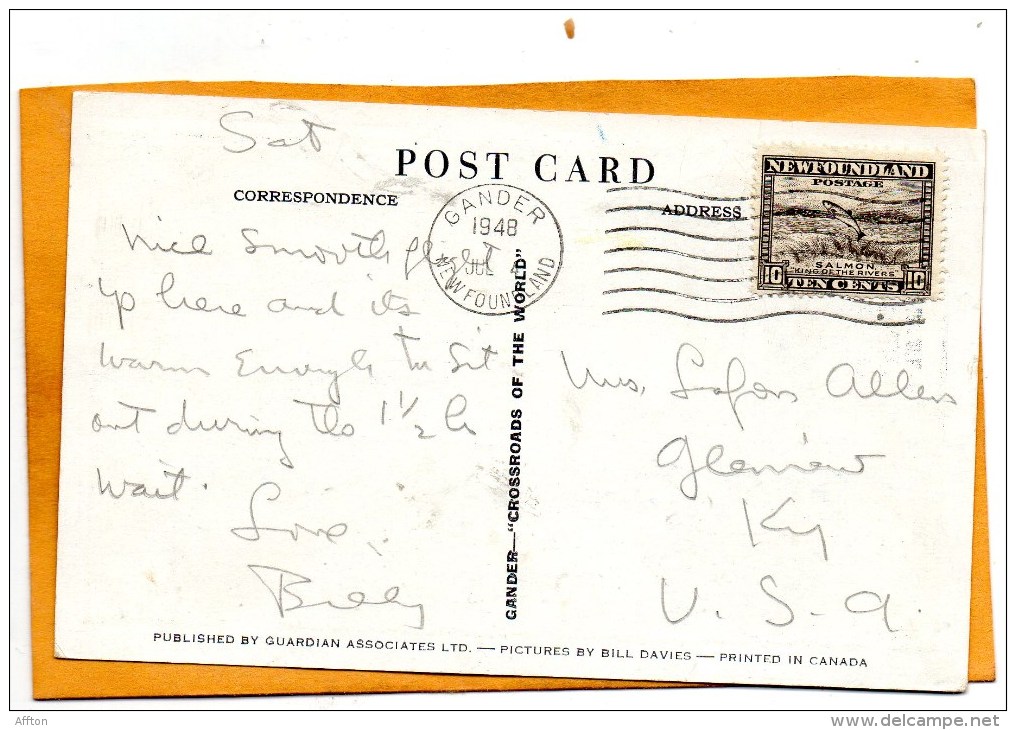 Sat
POST CARD
CORRESPONDENCE
ADDRESS
GANDER
1948
JUL
NEWFOUNDLAND
NEWFOUNDLAND
POSTAGE
SALMON
"KING OF THE RIVERS"
10 TEN CENTS 10
Nice Smooth flight
up here and its
warm Enough to Sit
out during the 1 1/2 hr
wait.
Love,
Billy
GANDER—"CROSSROADS OF THE WORLD"
Mrs. Lafon Allen
Glenview
Ky
U. S. A.
PUBLISHED BY GUARDIAN ASSOCIATES LTD. — PICTURES BY BILL DAVIES — PRINTED IN CANADA
Affton
delcampe.net